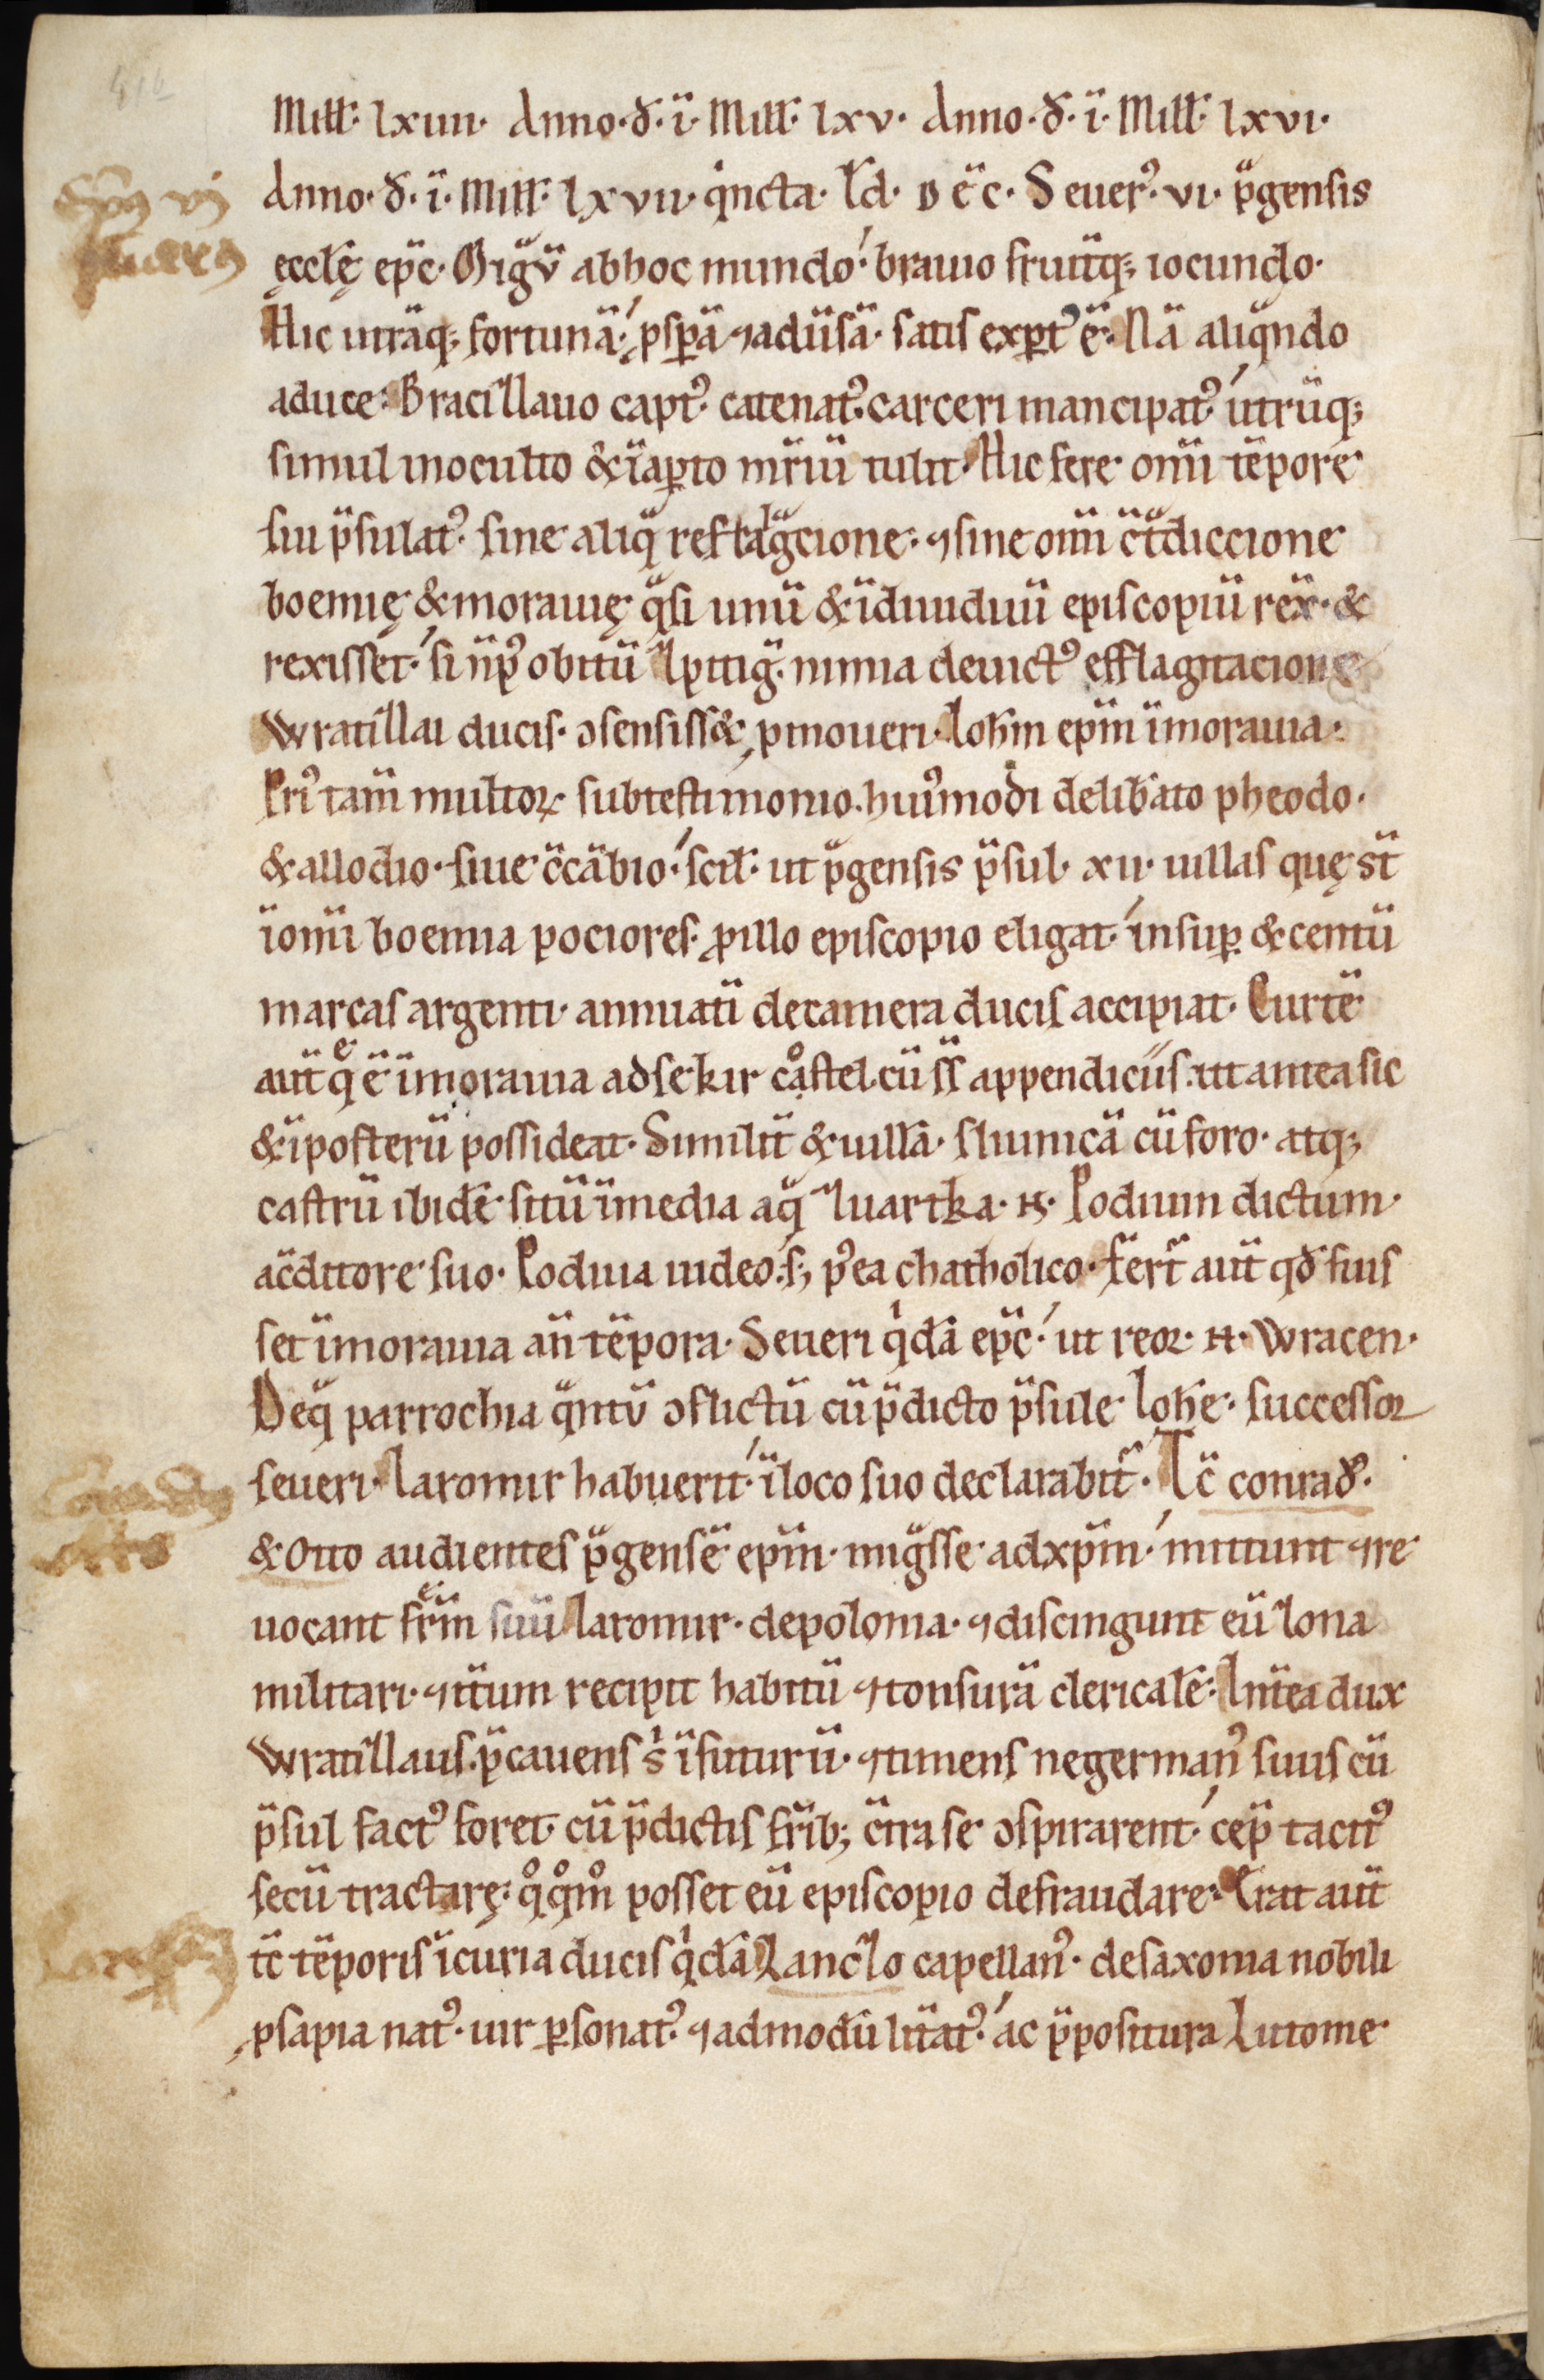 Mill̅. lxiiii. Anno. d̅. i̅. Mill̅. lxv. Anno. d̅. i̅. Mill̅. lxvi.
Anno. d̅. i̅. Mill̅. lxvii. qͥncta. Id̅. Dec̅. Seuerꝰ. vi. p̅gensis
ęccl̅ę ep̅c. Migͣu̅ ab hoc mundo. brauio fruitq; iocundo.
Hic utra̅q; fortuna̅. ꝓsꝑa̅ ⁊ adu̅sa̅. satis exꝑtꝰ e̅. Na̅ aliqͣndo
a duce Bracizlauo captꝰ. catenatꝰ. carceri mancipatꝰ. utru̅q;
simul in oculto & i̅ aꝑto mr̅iu̅ tulit. Hic fere om̅i te̅pore
sui p̅sulatꝰ. sine aliqͣ reflagͣcione. ⁊ sine om̅i c̅tͣdiccione
boemię & morauię qͣsi unu̅ & i̅diuiduu̅ episcopiu̅ rex̅. &
rexisset. si n̅ pꝰ obitu̅ Zpitigͣ. nimia deuictꝰ efflagitacione
Wratizlai ducis. ↄsensiss& ꝓmoueri. Ioh̅m ep̅m i̅ morauia.
Priꝰ tam̅ multoꝝ sub testimonio. huiꝰmodi delib̅ato pheodo.
& allodio. siue c̅ca̅bio. scil̅. ut p̅gensis p̅sul. xii. uillas quę st̅
i̅ om̅i boemia pociores. ꝓ illo episcopio eligat. insuꝑ & centu̅
marcas argenti. annuati̅ de camera ducis accipiat. Curte̅
aut̅ q̅ e̅ i̅ morauia ad sekir coͣstel. cu̅ ss̅ appendiciis. ut antea sic
& i̅ posteru̅ possideat. Similit̅ & uilla̅. sliunica̅ cu̅ foro. atq;
castru̅ ibide̅ situ̅ i̅ media aqͣ zuartka. N. Podium dictum.
a c̅ditore suo. Poduia iudeo. s; pꝰea chatholico. fert̅ aut̅ qd̅ fuis
set i̅ morauia an̅ te̅pora. Seueri qͥda̅ ep̅c. ut reoꝛ. N. Wracen.
De qͣ parrochia qͣntu̅ ↄflictu̅ cu̅ p̅dicto p̅sule Ioh̅e. successoꝛ
seueri. Iaromir habuerit. i̅ loco suo declarabit̅. Tc̅ conradꝰ.
& Otto audientes p̅gense̅ ep̅m. migͣsse ad xp̅m. mittunt ⁊ re
uocant fr̅em suu̅ Iaromir. de polonia. ⁊ discingunt eu̅ zona
militari. ⁊ it̅um recipit habitu̅ ⁊ tonsura̅ clericale̅. Int̅ea dux
Wratizlaus. p̅cauens sͥ i̅ futuru̅. ⁊ timens ne germanꝰ suus cu̅
p̅sul factꝰ foret. cu̅ p̅dictis fr̅ib; c̅tra se ↄspirarent. cep̅ tacitꝰ
secu̅ tractarę. qͦqͦm̅ posset eu̅ episcopio defraudare. Erat aut̅
tc̅ te̅poris i̅ curia ducis qͥda̅ Lanczo capellanꝰ. de saxonia nobili
ꝓsapia natꝰ. uir ꝑsonatꝰ. ⁊ admodu̅ lit̅atꝰ. ac p̅positura Lutome